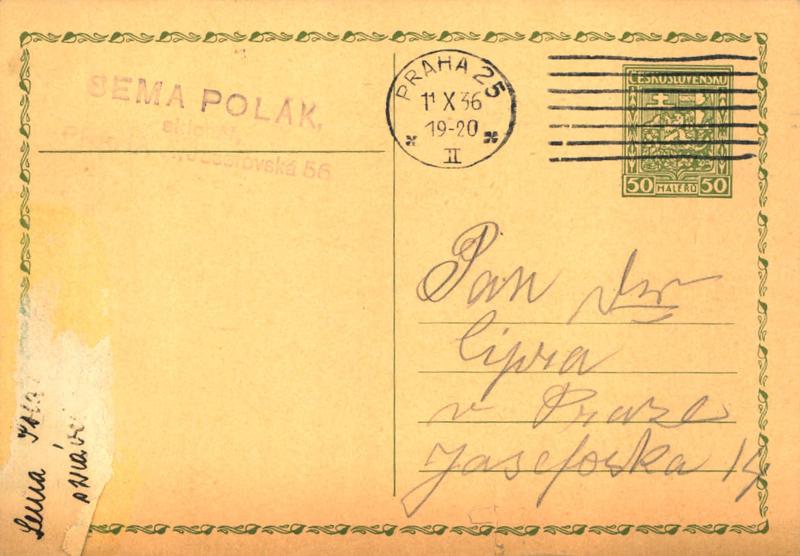 SEMA POLÁK,
PRAHA 25
11 X 36
19-20
II
ČESKOSLOVENSKO
50 HALÉŘŮ 50
Pan Dr
Lipra
v Praze
Josefovska 14
Sema